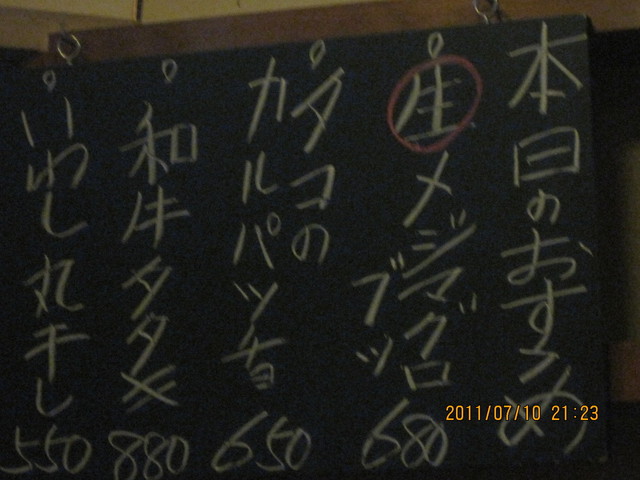 本日のおすすめ
生メジマグロ
ブツ
680
タコの
カルパッチョ
650
和牛タタキ
880
いわし丸干し
550
2011/07/10 21:23